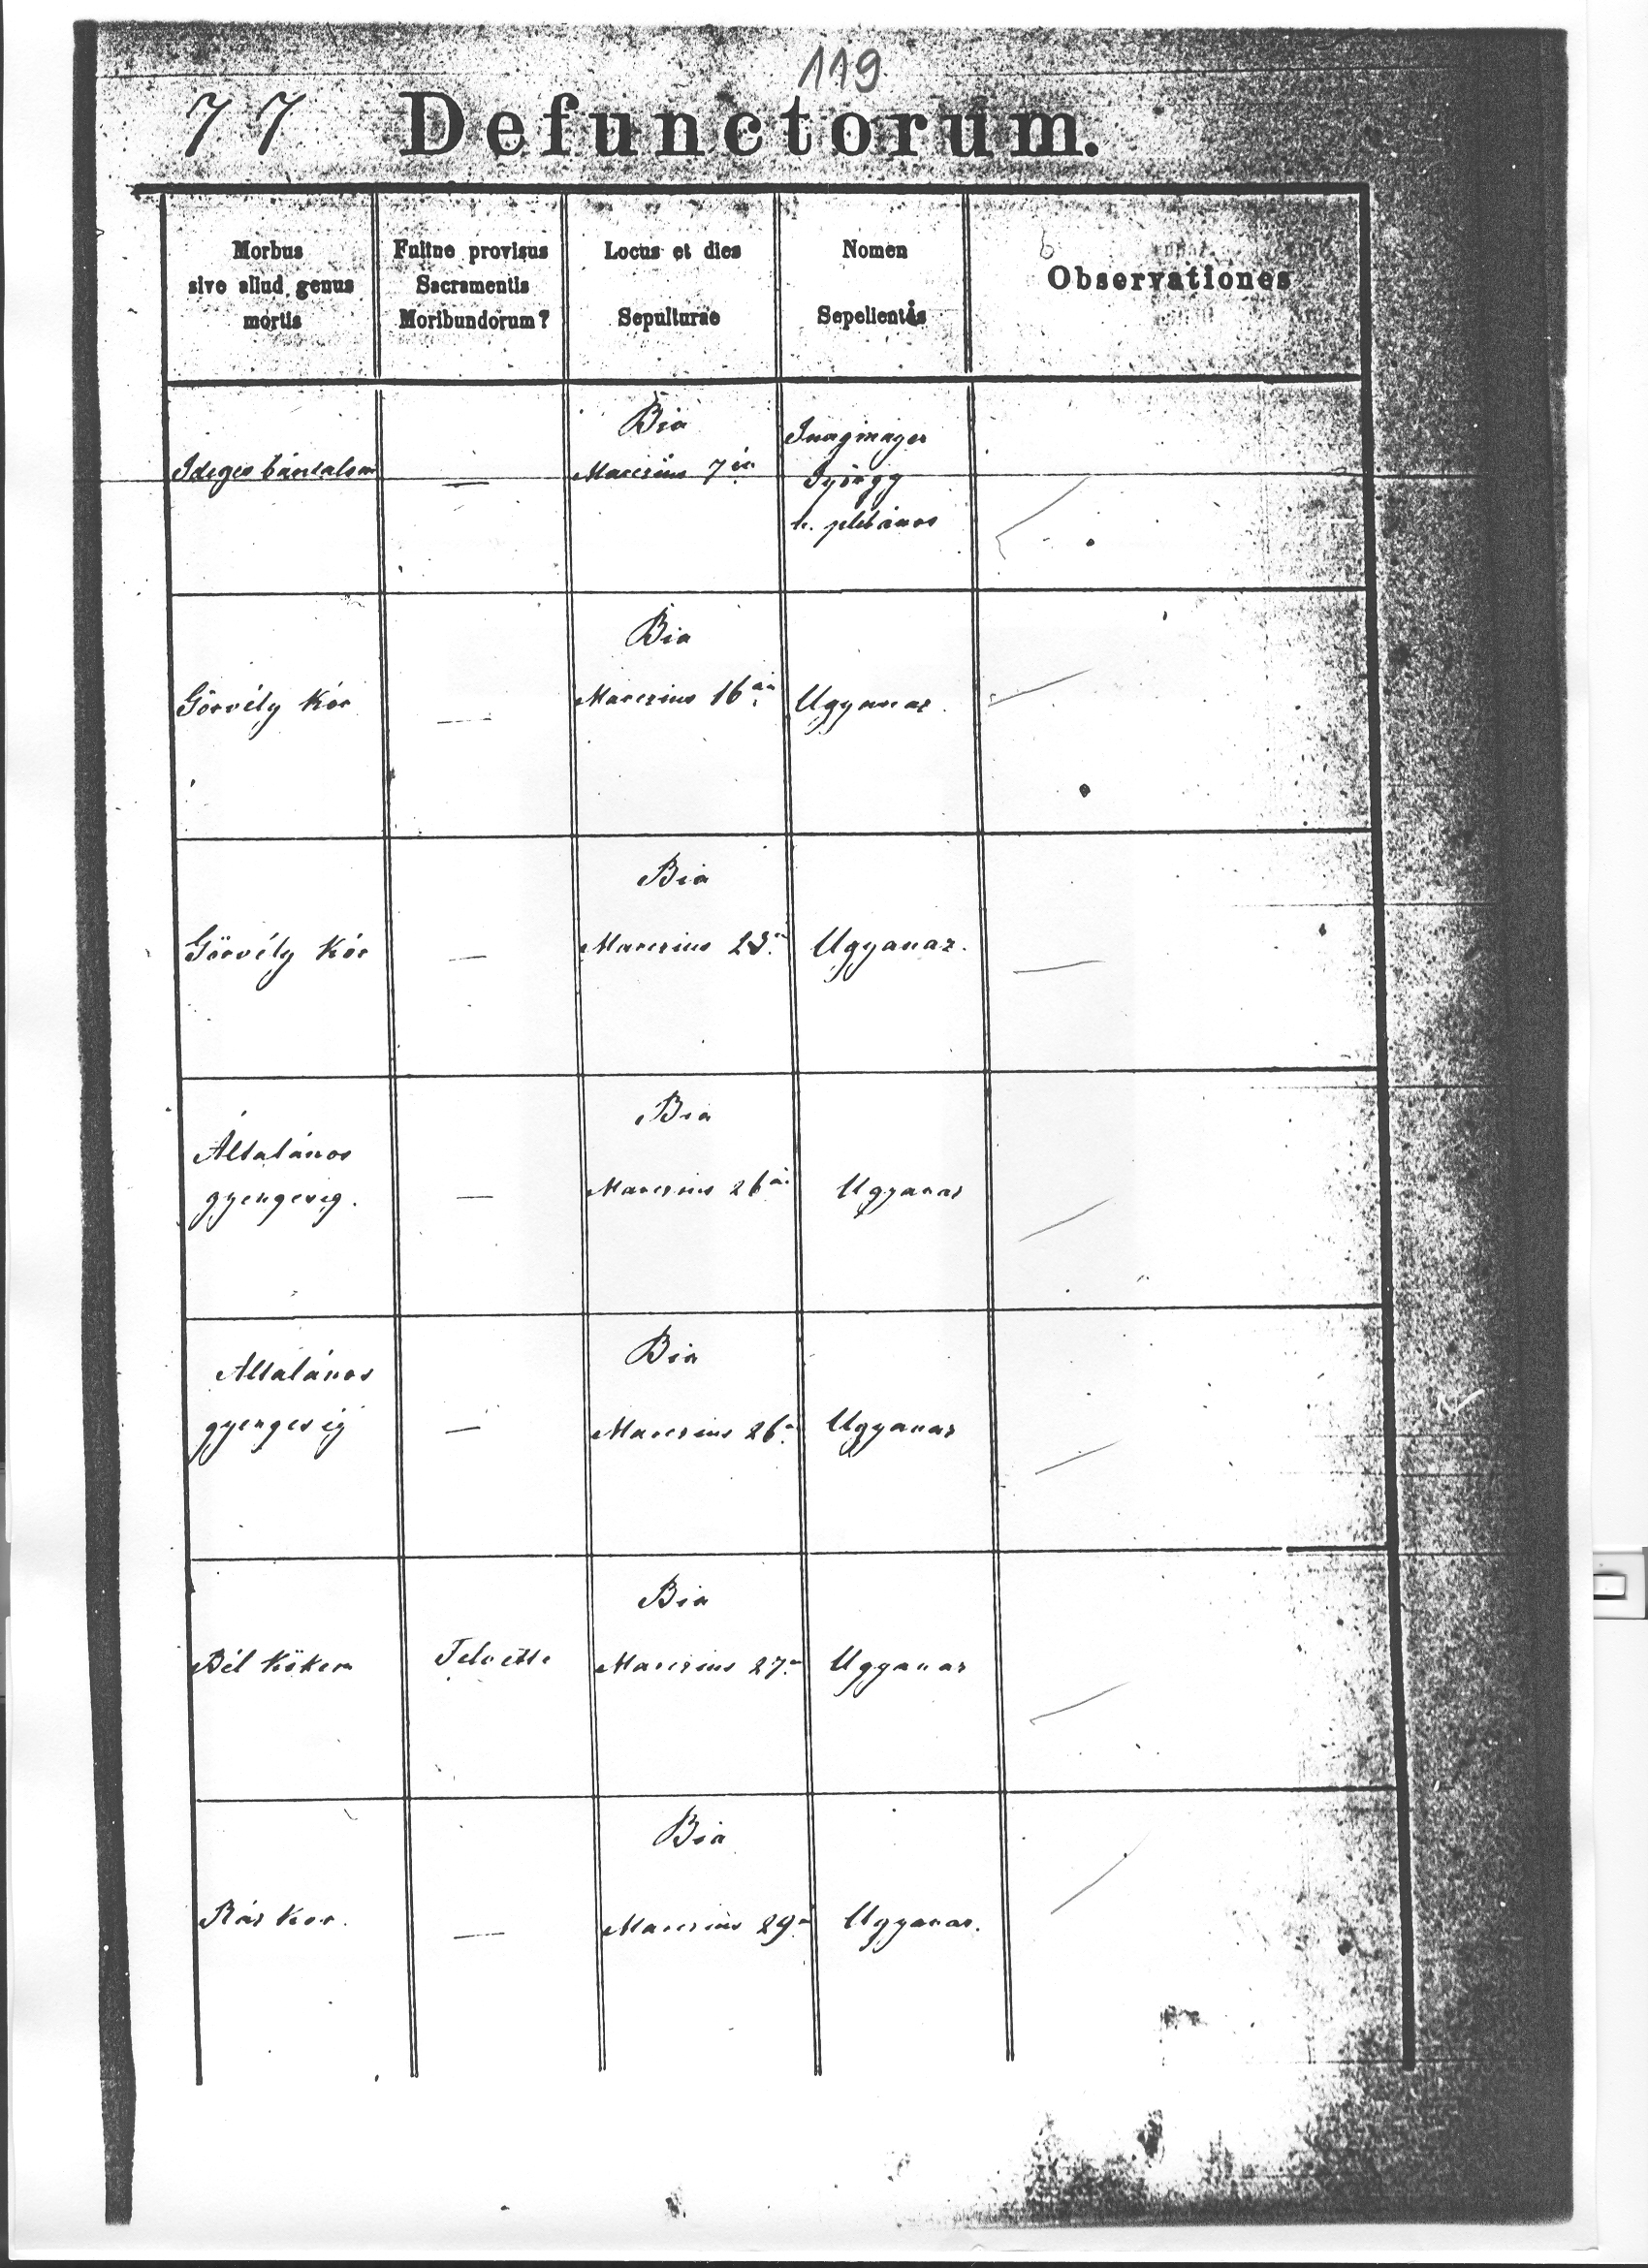 119
77 Defunctorum.
Morbus
sive aliud genus
mortis
Fuitne provisus
Sacramentis
Moribundorum?
Locus et dies
Sepulturae
Nomen
Sepelientis
Observationes
Ideges bántalom
—
Bia
Marczius 7én
György
h. plébános
Görvély kór
—
Bia
Marczius 16án
Ugyanaz.
Görvély kór
—
Bia
Marczius 23.
Ugyanaz.
Általános
gyengeség.
—
Bia
Marczius 26án
Ugyanaz
Általános
gyengeség
—
Bia
Marczius 26
Ugyanaz
Bia
Marczius 27
Ugyanaz
—
Bia
Marczius 29
Ugyanaz.